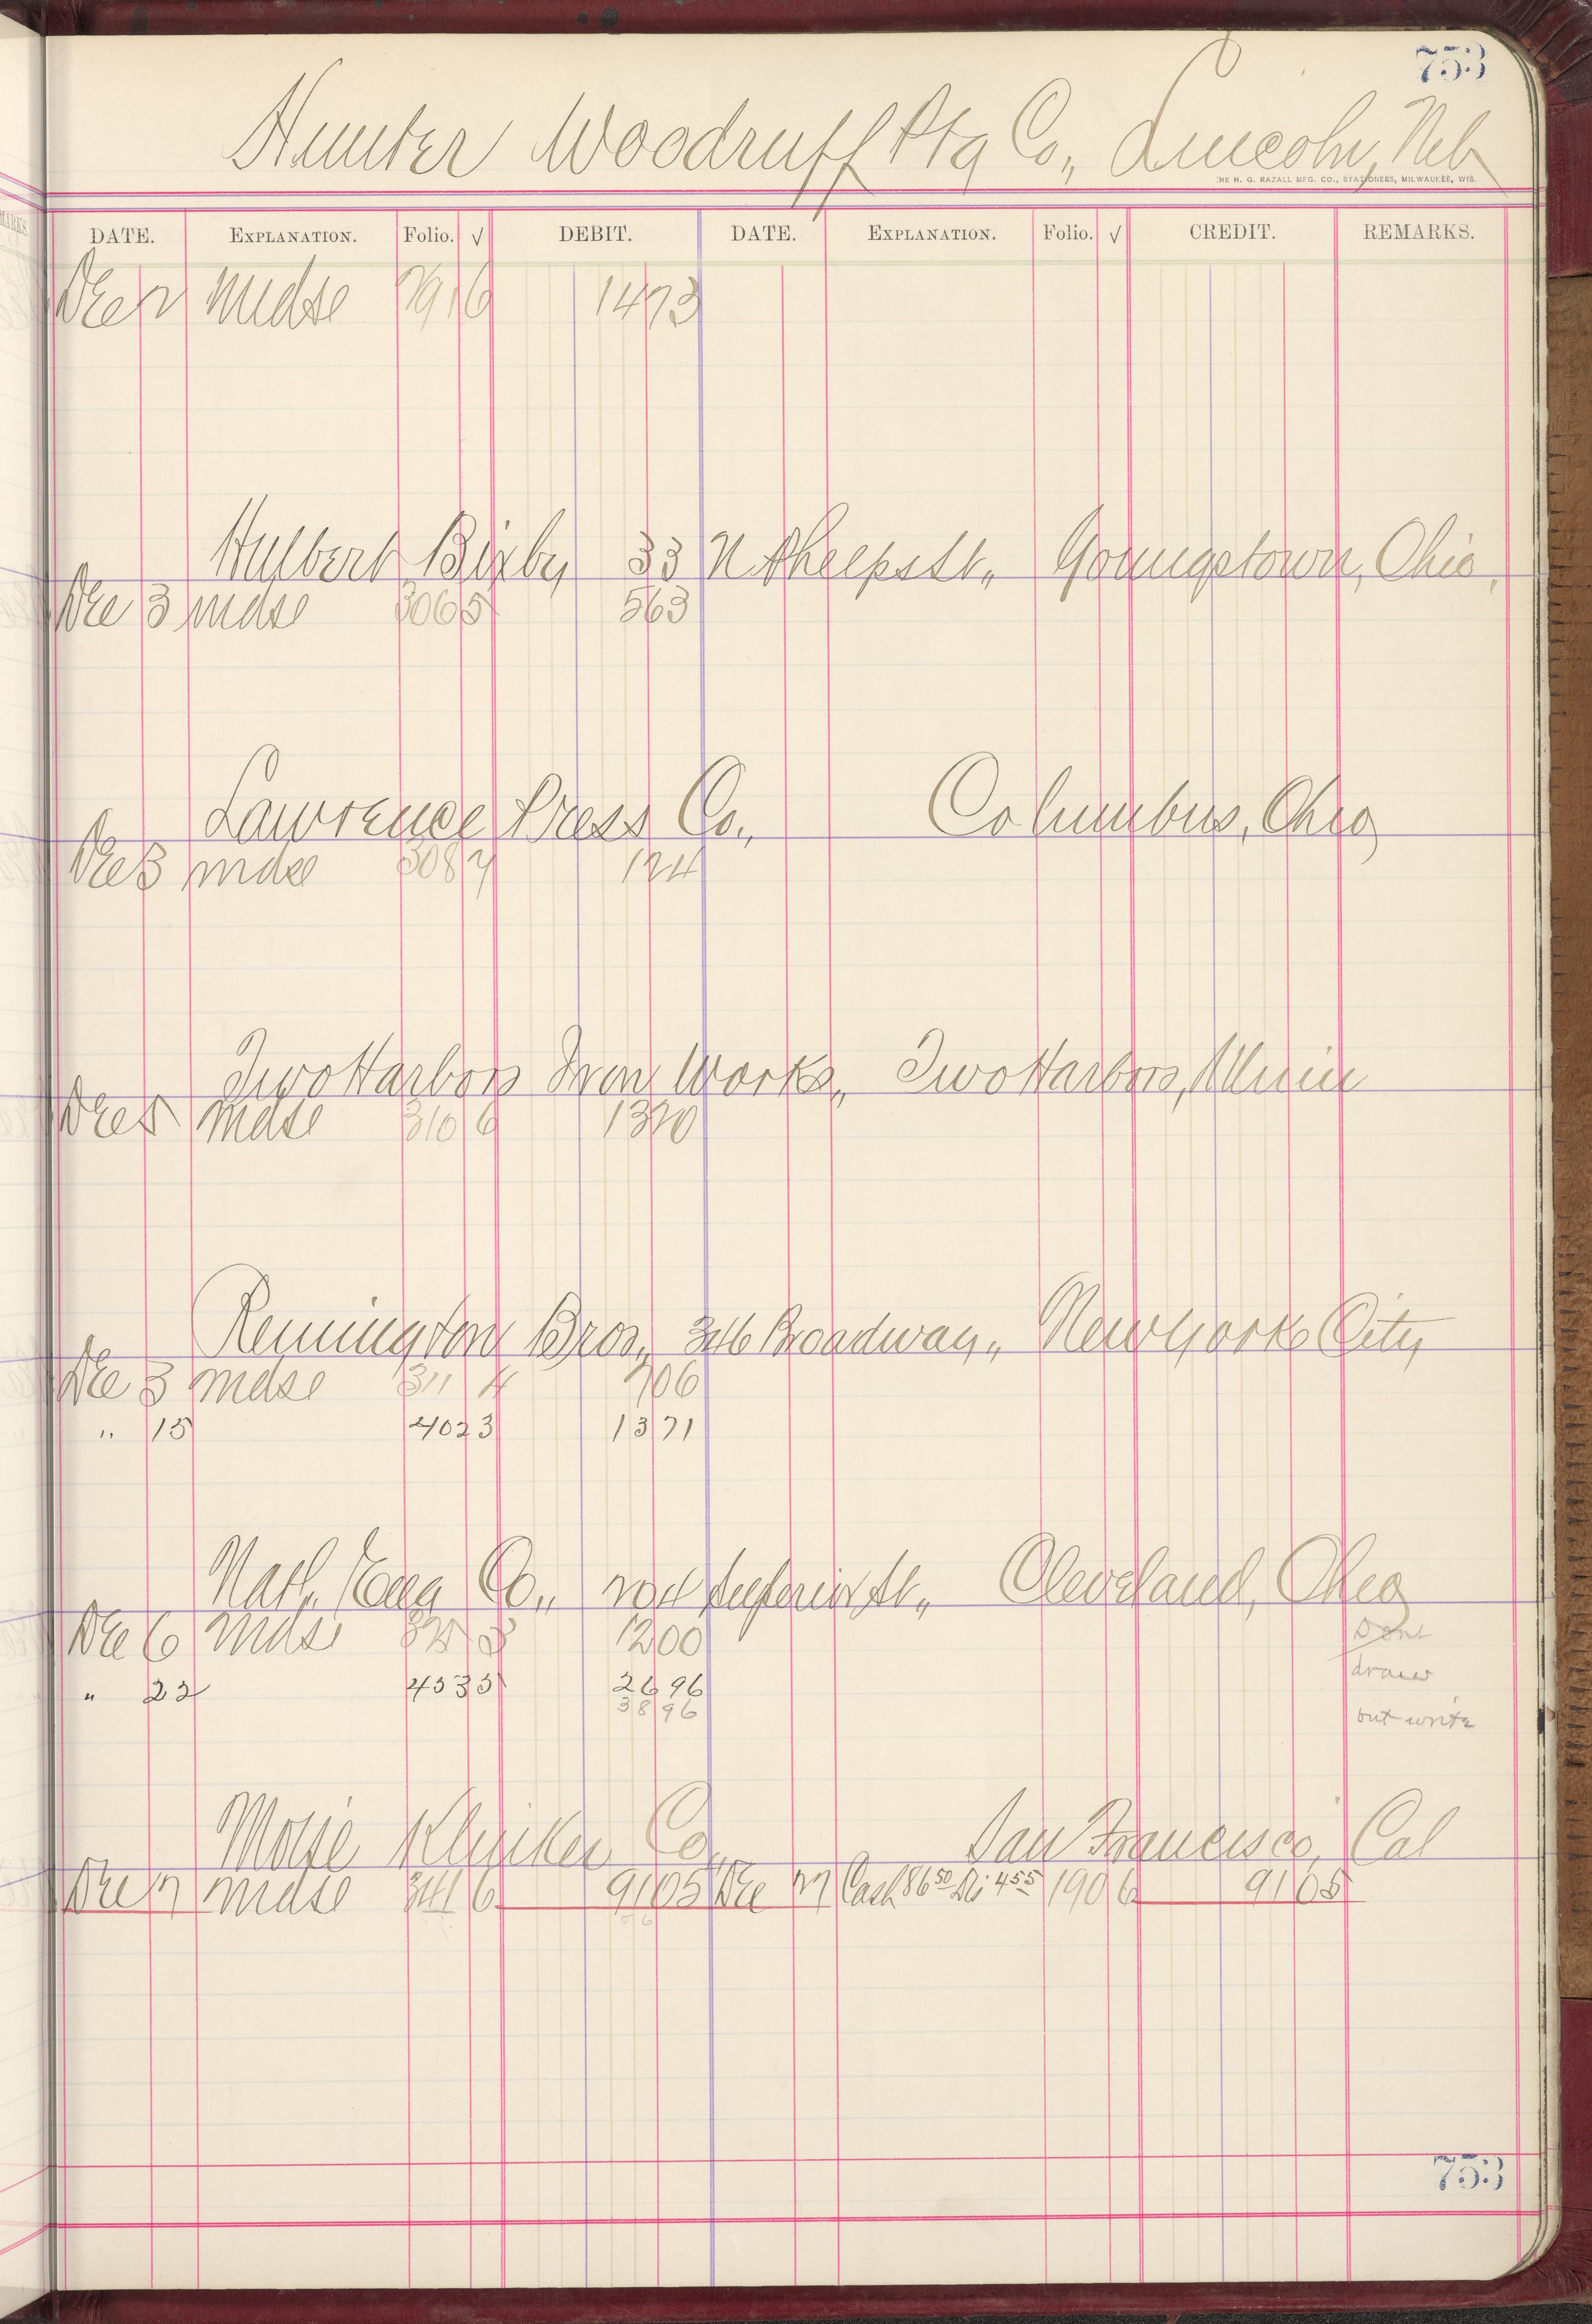 753
Hunter Woodruff Ptg Co., Lincoln, Neb
THE H. G. RAZALL MFG. CO., STATIONERS, MILWAUKEE, WIS.
MARKS.
DATE. EXPLANATION. Folio. √ DEBIT. DATE. EXPLANATION. Folio. √ CREDIT. REMARKS.
Dec 2 mdse 2916 1473
Hulbert Bixby 33 N Phelps St., Youngstown, Ohio,
Dec 3 mdse 3065 563
Lawrence Press Co., Columbus, Ohio
Dec 3 mdse 3087 124
Two Harbors Iron Works, Two Harbors, Minn
Dec 5 mdse 3106 1320
Remington Bros., 346 Broadway, New York City
Dec 3 mdse 3114 706
" 15 4023 1371
Natl. Eng Co., 204 Superior St., Cleveland, Ohio
Dec 6 mdse 1200 Dont
" 22 4535 2696 draw
3896 out write
Klinker Co., San Francisco, Cal
Dec 7 mdse 3416 9105 Dec 27 Cash 86 50 Di 4 55 1906 9105
753